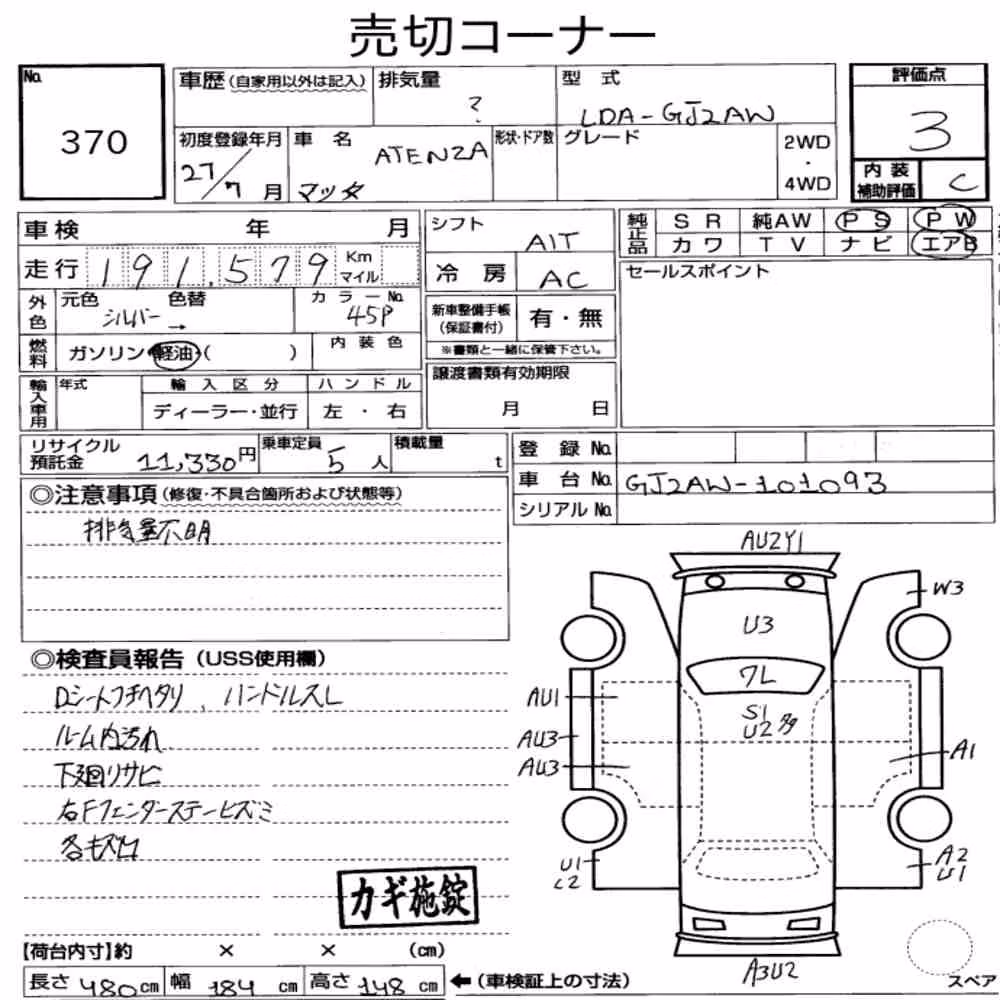 売切コーナー
No. 370
車歴(自家用以外は記入) 排気量 ? 型式 LDA-GJ2AW
評価点 3
初度登録年月 27/7月 車名 マツダ ATENZA 形状・ドア数 グレード 2WD・4WD
内装補助評価 C
車検 年 月
走行 191,579 Km マイル
外色 元色 シルバー → 色替 カラーNo. 45P
燃料 ガソリン・軽油・( ) 内装色
輸入車用 年式 輸入区分 ディーラー・並行 ハンドル 左・右
シフト AIT
冷房 AC
新車整備手帳(保証書付) 有・無
※書類と一緒に保管下さい。
譲渡書類有効期限 月 日
純正品 SR 純AW PS PW
カワ TV ナビ エアB
セールスポイント
リサイクル預託金 11,330円 乗車定員 5人 積載量 t
登録No.
車台No. GJ2AW-101093
シリアルNo.
◎注意事項(修復・不具合箇所および状態等)
排気量不明
◎検査員報告(USS使用欄)
Dシートフチヘタリ、ハンドルスレ
ルーム内汚れ
下廻りサビ
右Fフェンダーステーヒズミ
各キズ凹
カギ施錠
AU2Y1
W3
U3
ワレ
AU1
S1
U2多
AU3
A1
AU3
U1
A2
U1
A3U2
スペア
【荷台内寸】約 × × (cm)
長さ 480cm 幅 184cm 高さ 148cm ←(車検証上の寸法)